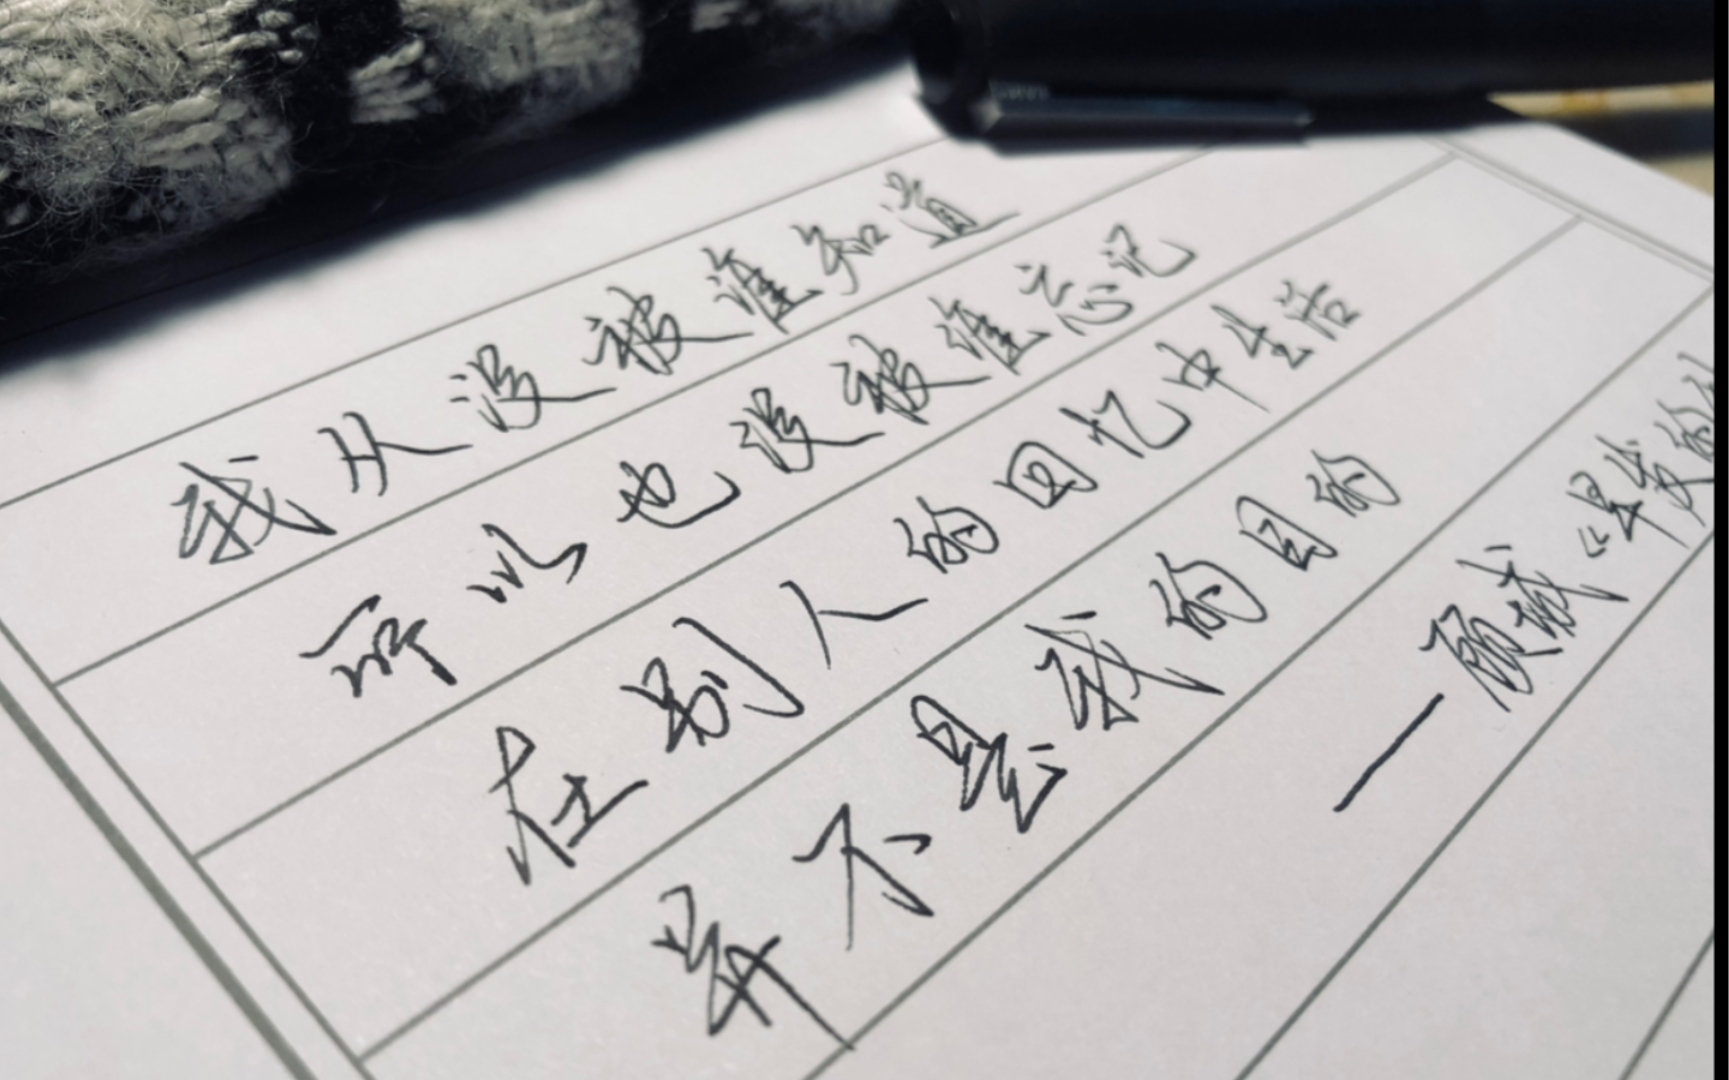 我从没被谁知道
所以也没被谁忘记
在别人的回忆中生活
并不是我的目的
—顾城《早发的